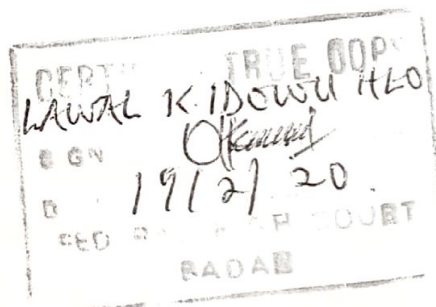 CERT TRUE COPY
LAWAL K. IDOWU HLO
SGN
D 19/2/20
FED R H COURT
BADAN